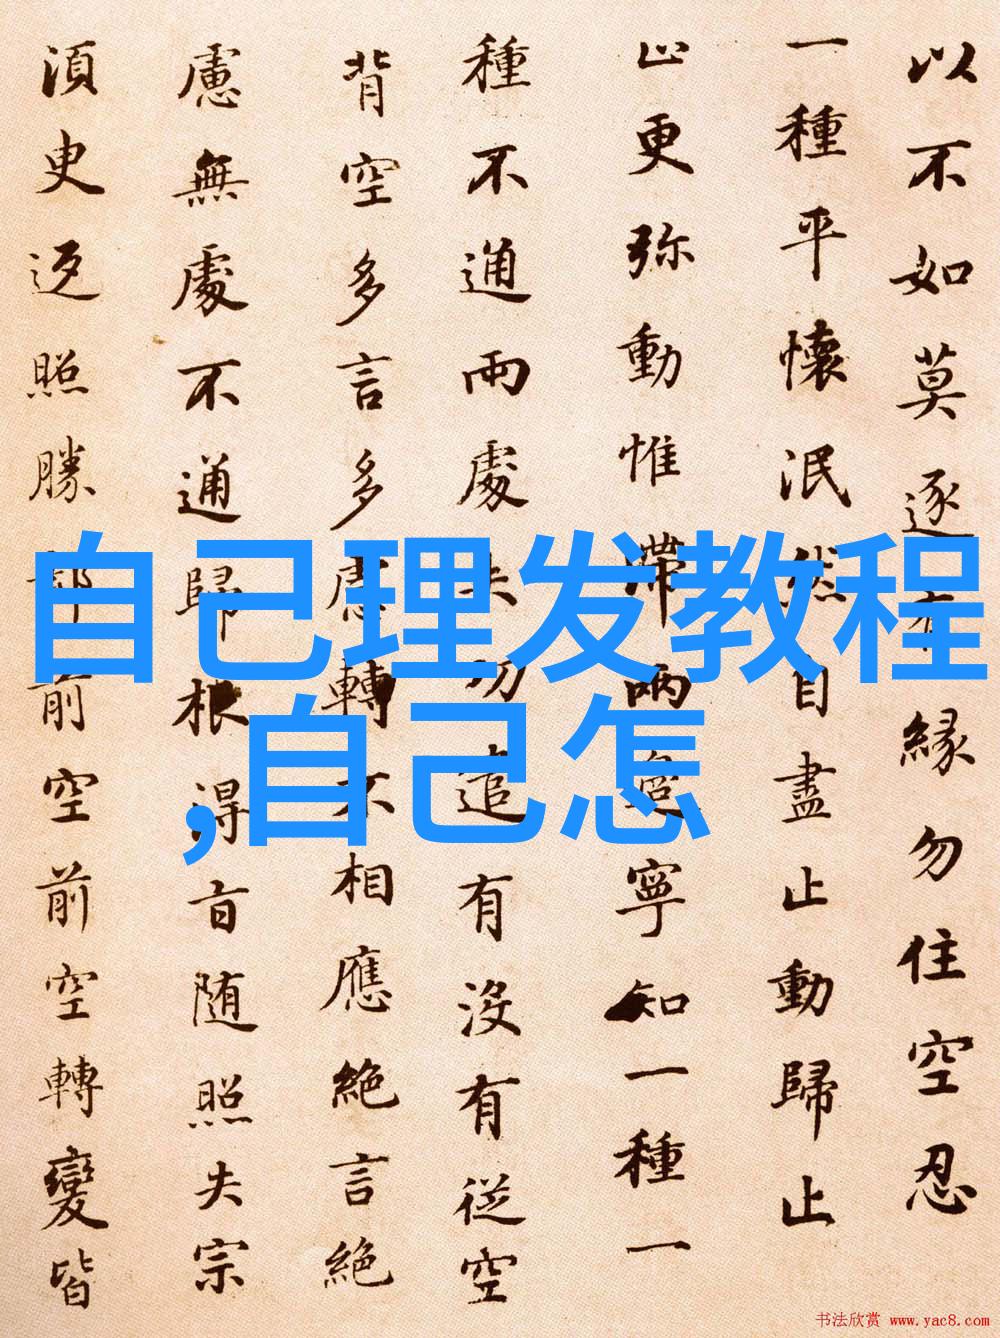 以不如莫逐有緣勿住空忍
一種平懷泯然自盡止動歸止
止更弥動惟滞兩邊寧知一種一
種不通兩處失功遣有沒有從空
背空多言多慮轉不相應絶言絶
慮無處不通歸根得旨随照失宗
須臾返照勝却前空前空轉變皆
自己理发教程
,自己怎
书法欣赏 www.yac8.com